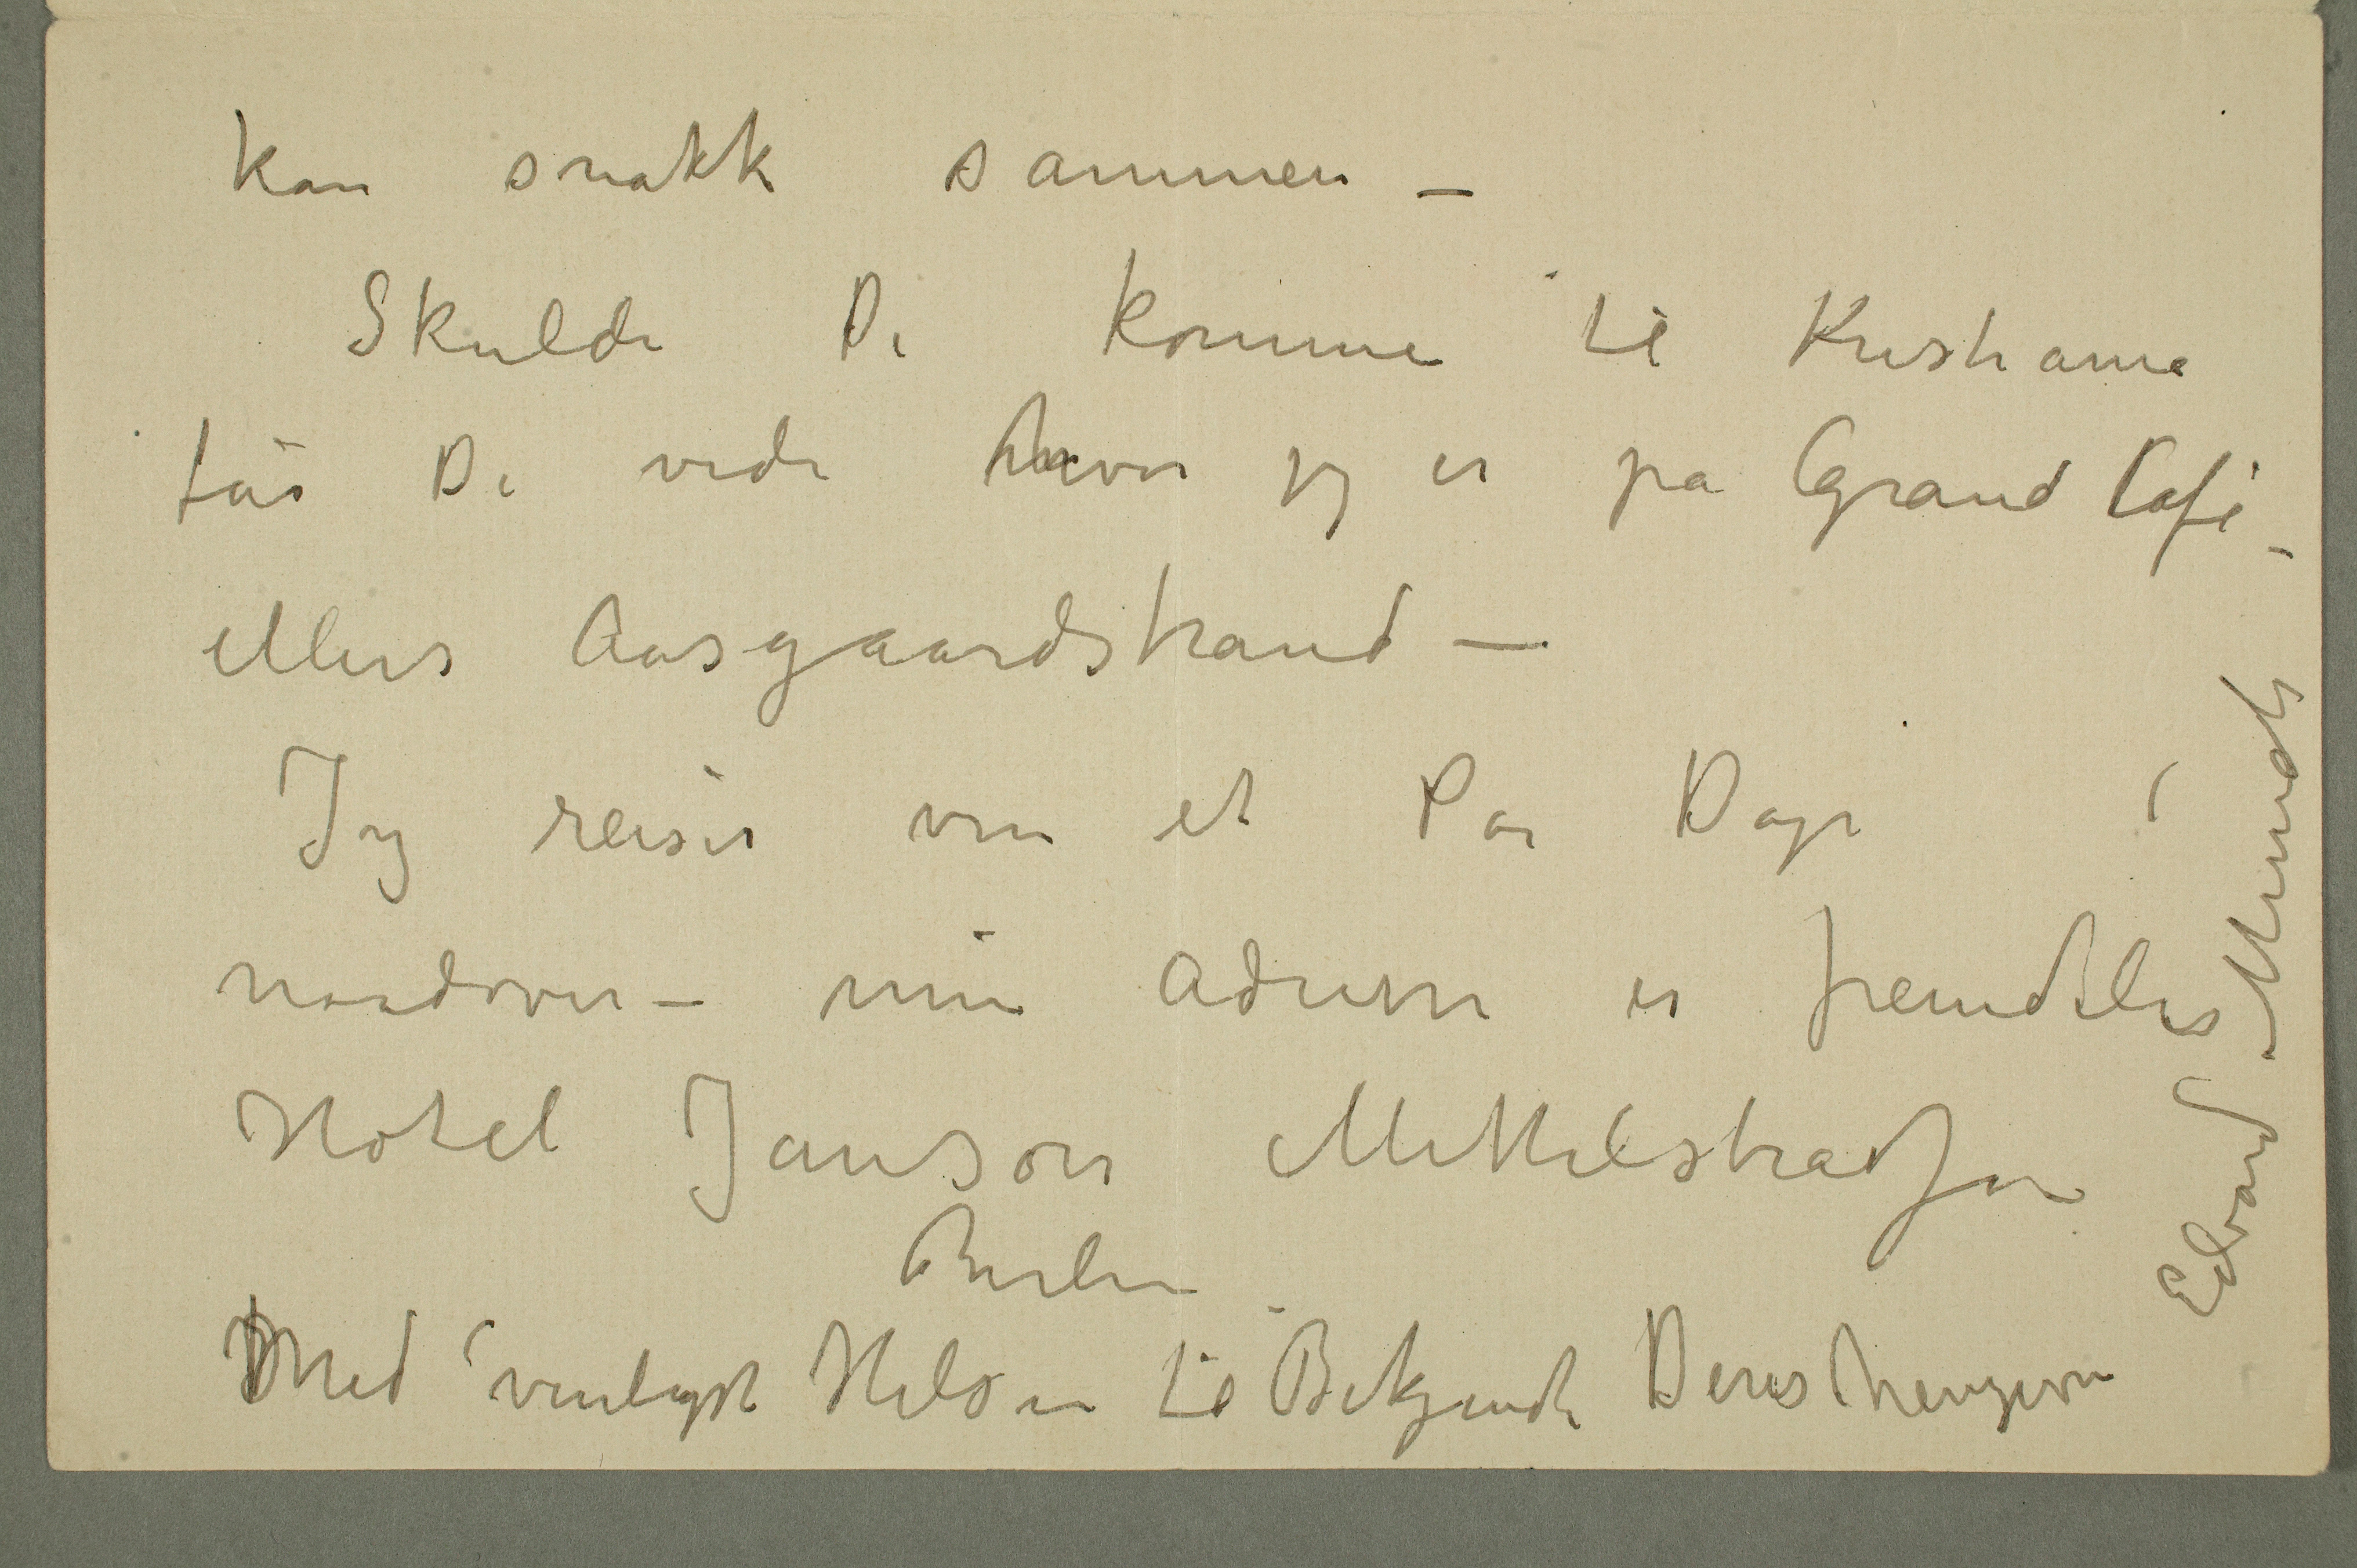 kan snakke sammen –
Skulde De komme til Kristiania
får De vide hvor jeg er på Grand Café –
ellers Aasgaardstrand –
Jeg reiser om et Par Dage
nordover – min Adresse er fremdeles
Hotel Janson Mittelstraße
Berlin
Med venligst Hilsen til Bekjendte Deres hengivne
Edvard Munch